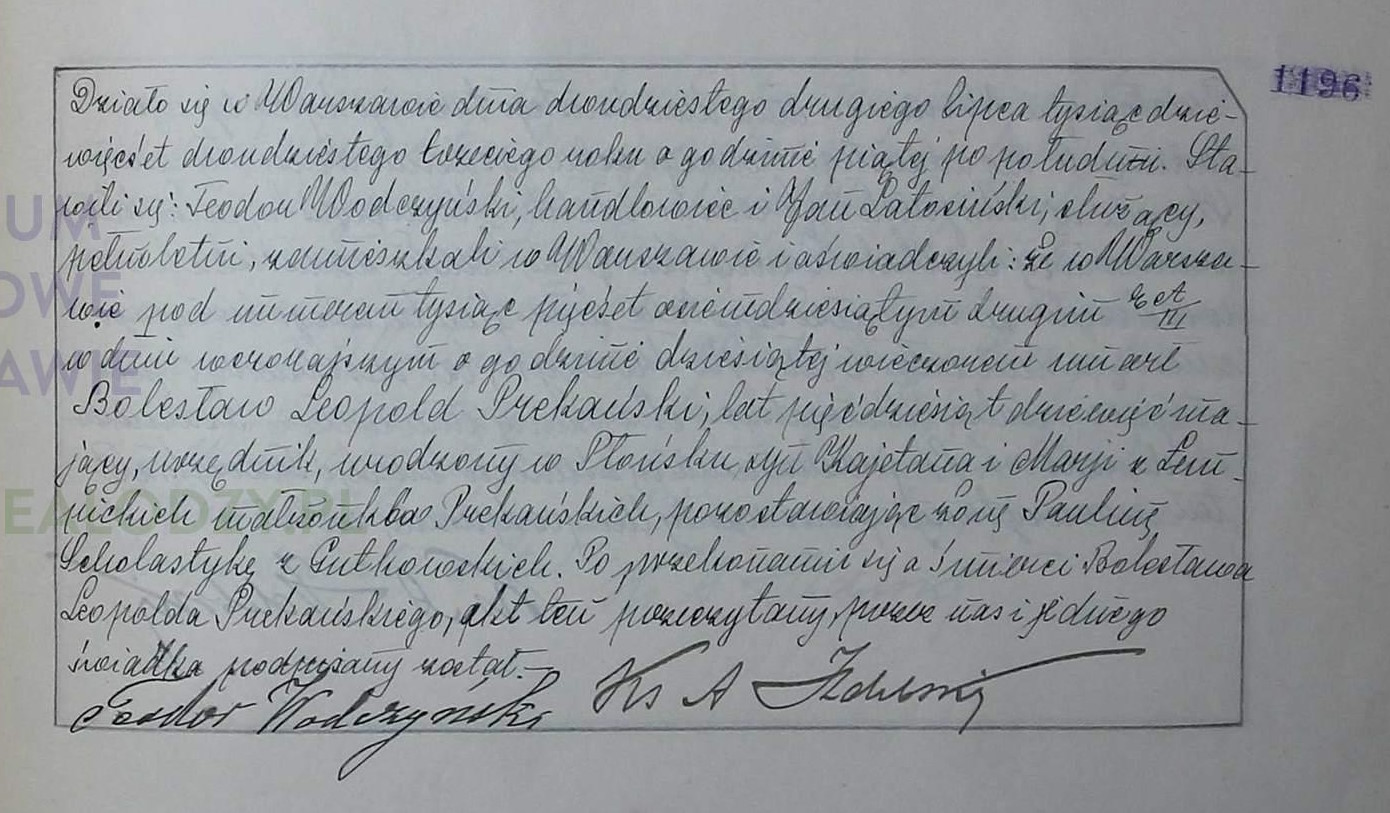 1196
Działo się w Warszawie dnia dwudziestego drugiego lipca tysiąc dzie-
więćset dwudziestego trzeciego roku o godzinie piątej po południu. Sta-
wili się: Teodor Wodczyński, handlowiec i Jan Latosiński, służący,
pełnoletni, zamieszkali w Warszawie i oświadczyli: że w Warsza-
wie pod numerem tysiąc pięćset osiemdziesiątym drugim
w dniu wczorajszym o godzinie dziesiątej wieczorem umarł
Bolesław Leopold Prekański, lat pięćdziesiąt dziewięć ma-
jący, urzędnik, urodzony w Płońsku, syn Kajetana i Marji z Lem-
pickich małżonków Prekańskich, pozostawiając żonę Paulinę
Scholastykę z Gutkowskich. Po przekonaniu się o śmierci Bolesława
Leopolda Prekańskiego, akt ten przeczytany, przez nas i jednego
świadka podpisany został.-
Teodor Wodczyński Ks A
UM
OWE
AWIE
EALODZY.PL